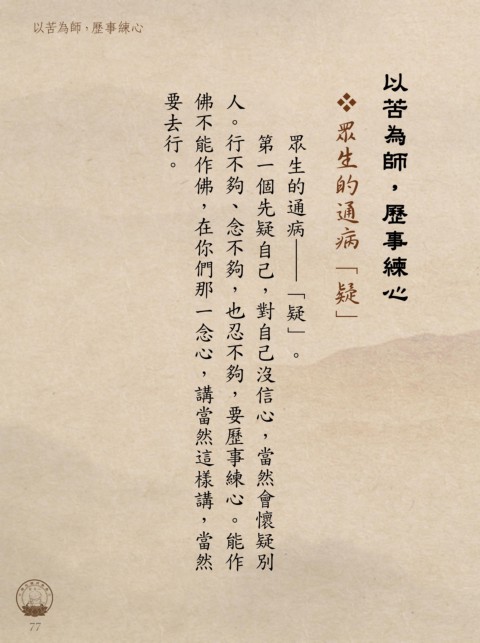 以苦為師，歷事練心
以苦為師，歷事練心
❖眾生的通病「疑」
眾生的通病——「疑」。
第一個先疑自己，對自己沒信心，當然會懷疑別
人。行不夠、念不夠，也忍不夠，要歷事練心。能作
佛不能作佛，在你們那一念心，講當然這樣講，當然
要去行。
77